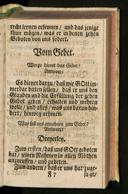 recht lernen erkennen / und das jenige
thun mögen / was er in denen zehen
Geboten von uns fodert.
Vom Gebet.
Worzu dienet das Gebet?
Antwort:
Es dienet darzu / daß wir GOtt im-
merdar bitten sollen / daß er uns den
Glauben und die Erfüllung der zehen
Gebot geben / erhalten und mehren
wolle / und was uns daran hin-
dert / hinweg nehmen.
Was soll uns zum Gebet?
Antwort:
Dreyerley.
Zum ersten / daß uns GOtt geboten
hat / seinen Nahmen in allen Nöthen
anzuruffen / und zu beten.
Zum andern / daß er uns hat zuge-